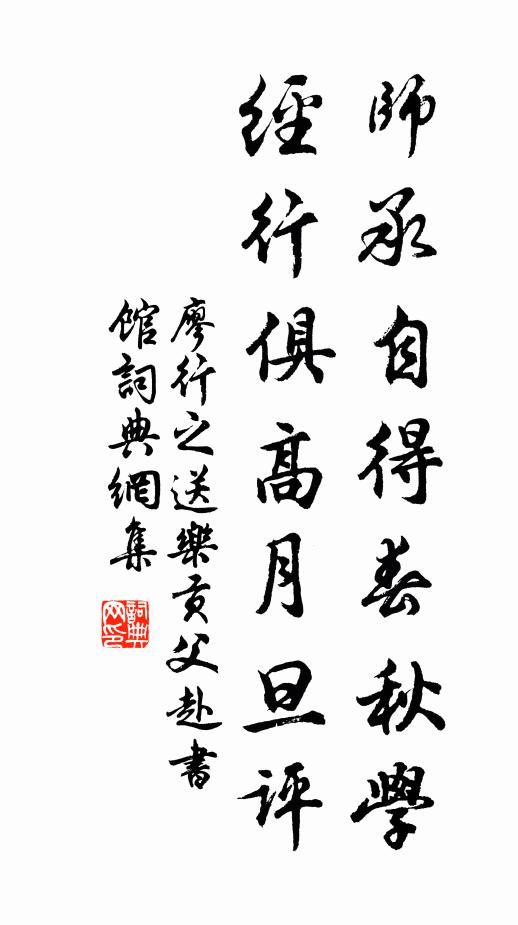 師承自得春秋學
經行俱高月旦評
廖行之送樂貢父赴書
館詞典網集
詞典
网印